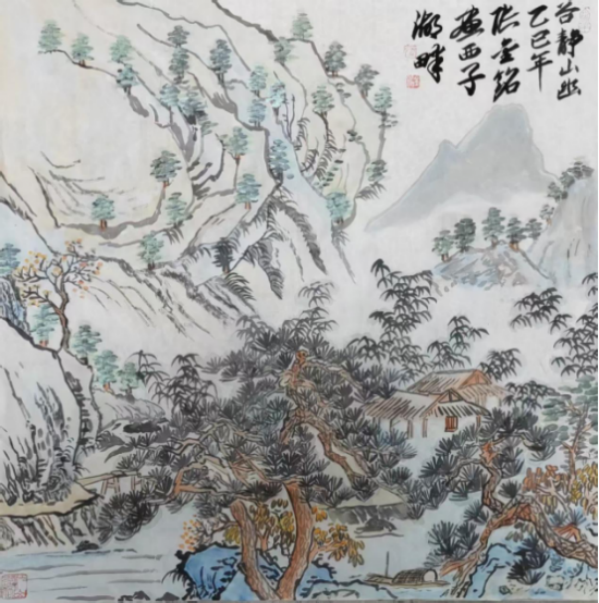 谷静山幽
乙巳年
金铭
画西子
湖畔